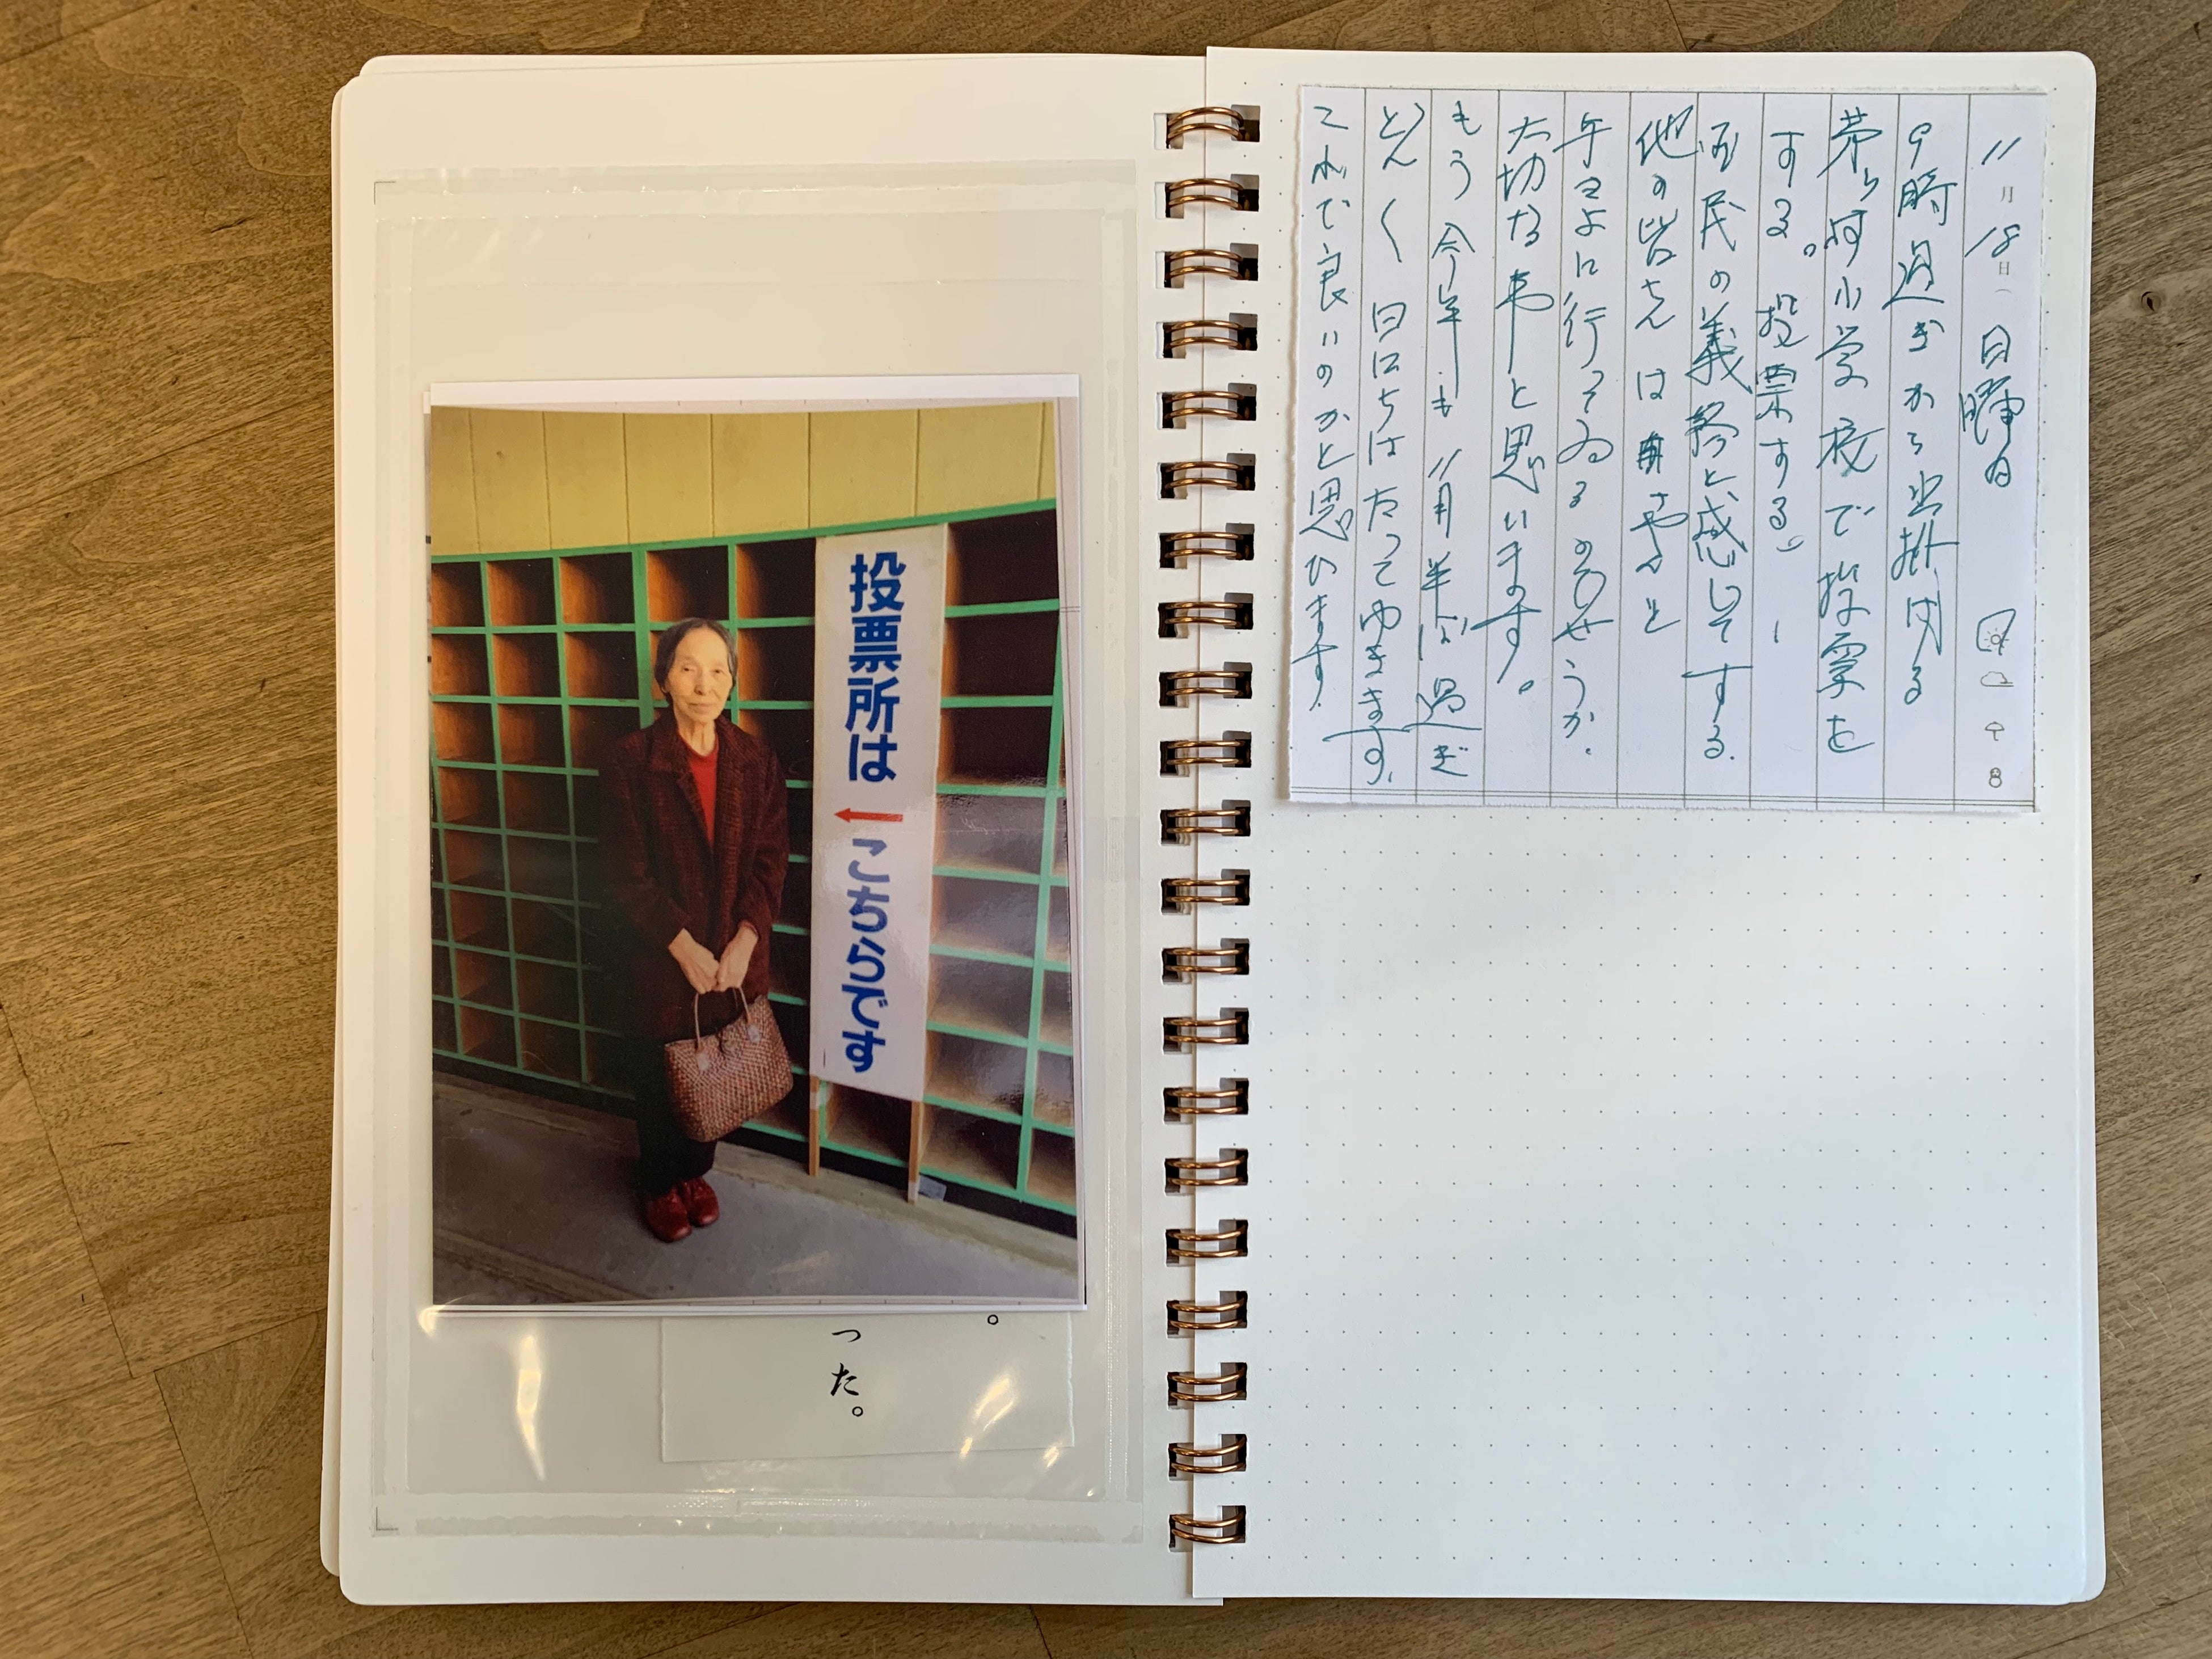 投票所は
←
こちらです
。
った。
11月18日 日曜日
9時過ぎから出掛ける
小学校で投票を
する。投票する。
国民の義務と感じてする.
他の皆さんは
行ってゐるのでせうか.
大切な事と思います。
もう今年も11月半ば過ぎ
どん〱 日にちはたってゆきます.
これで良いのかと思ひます.